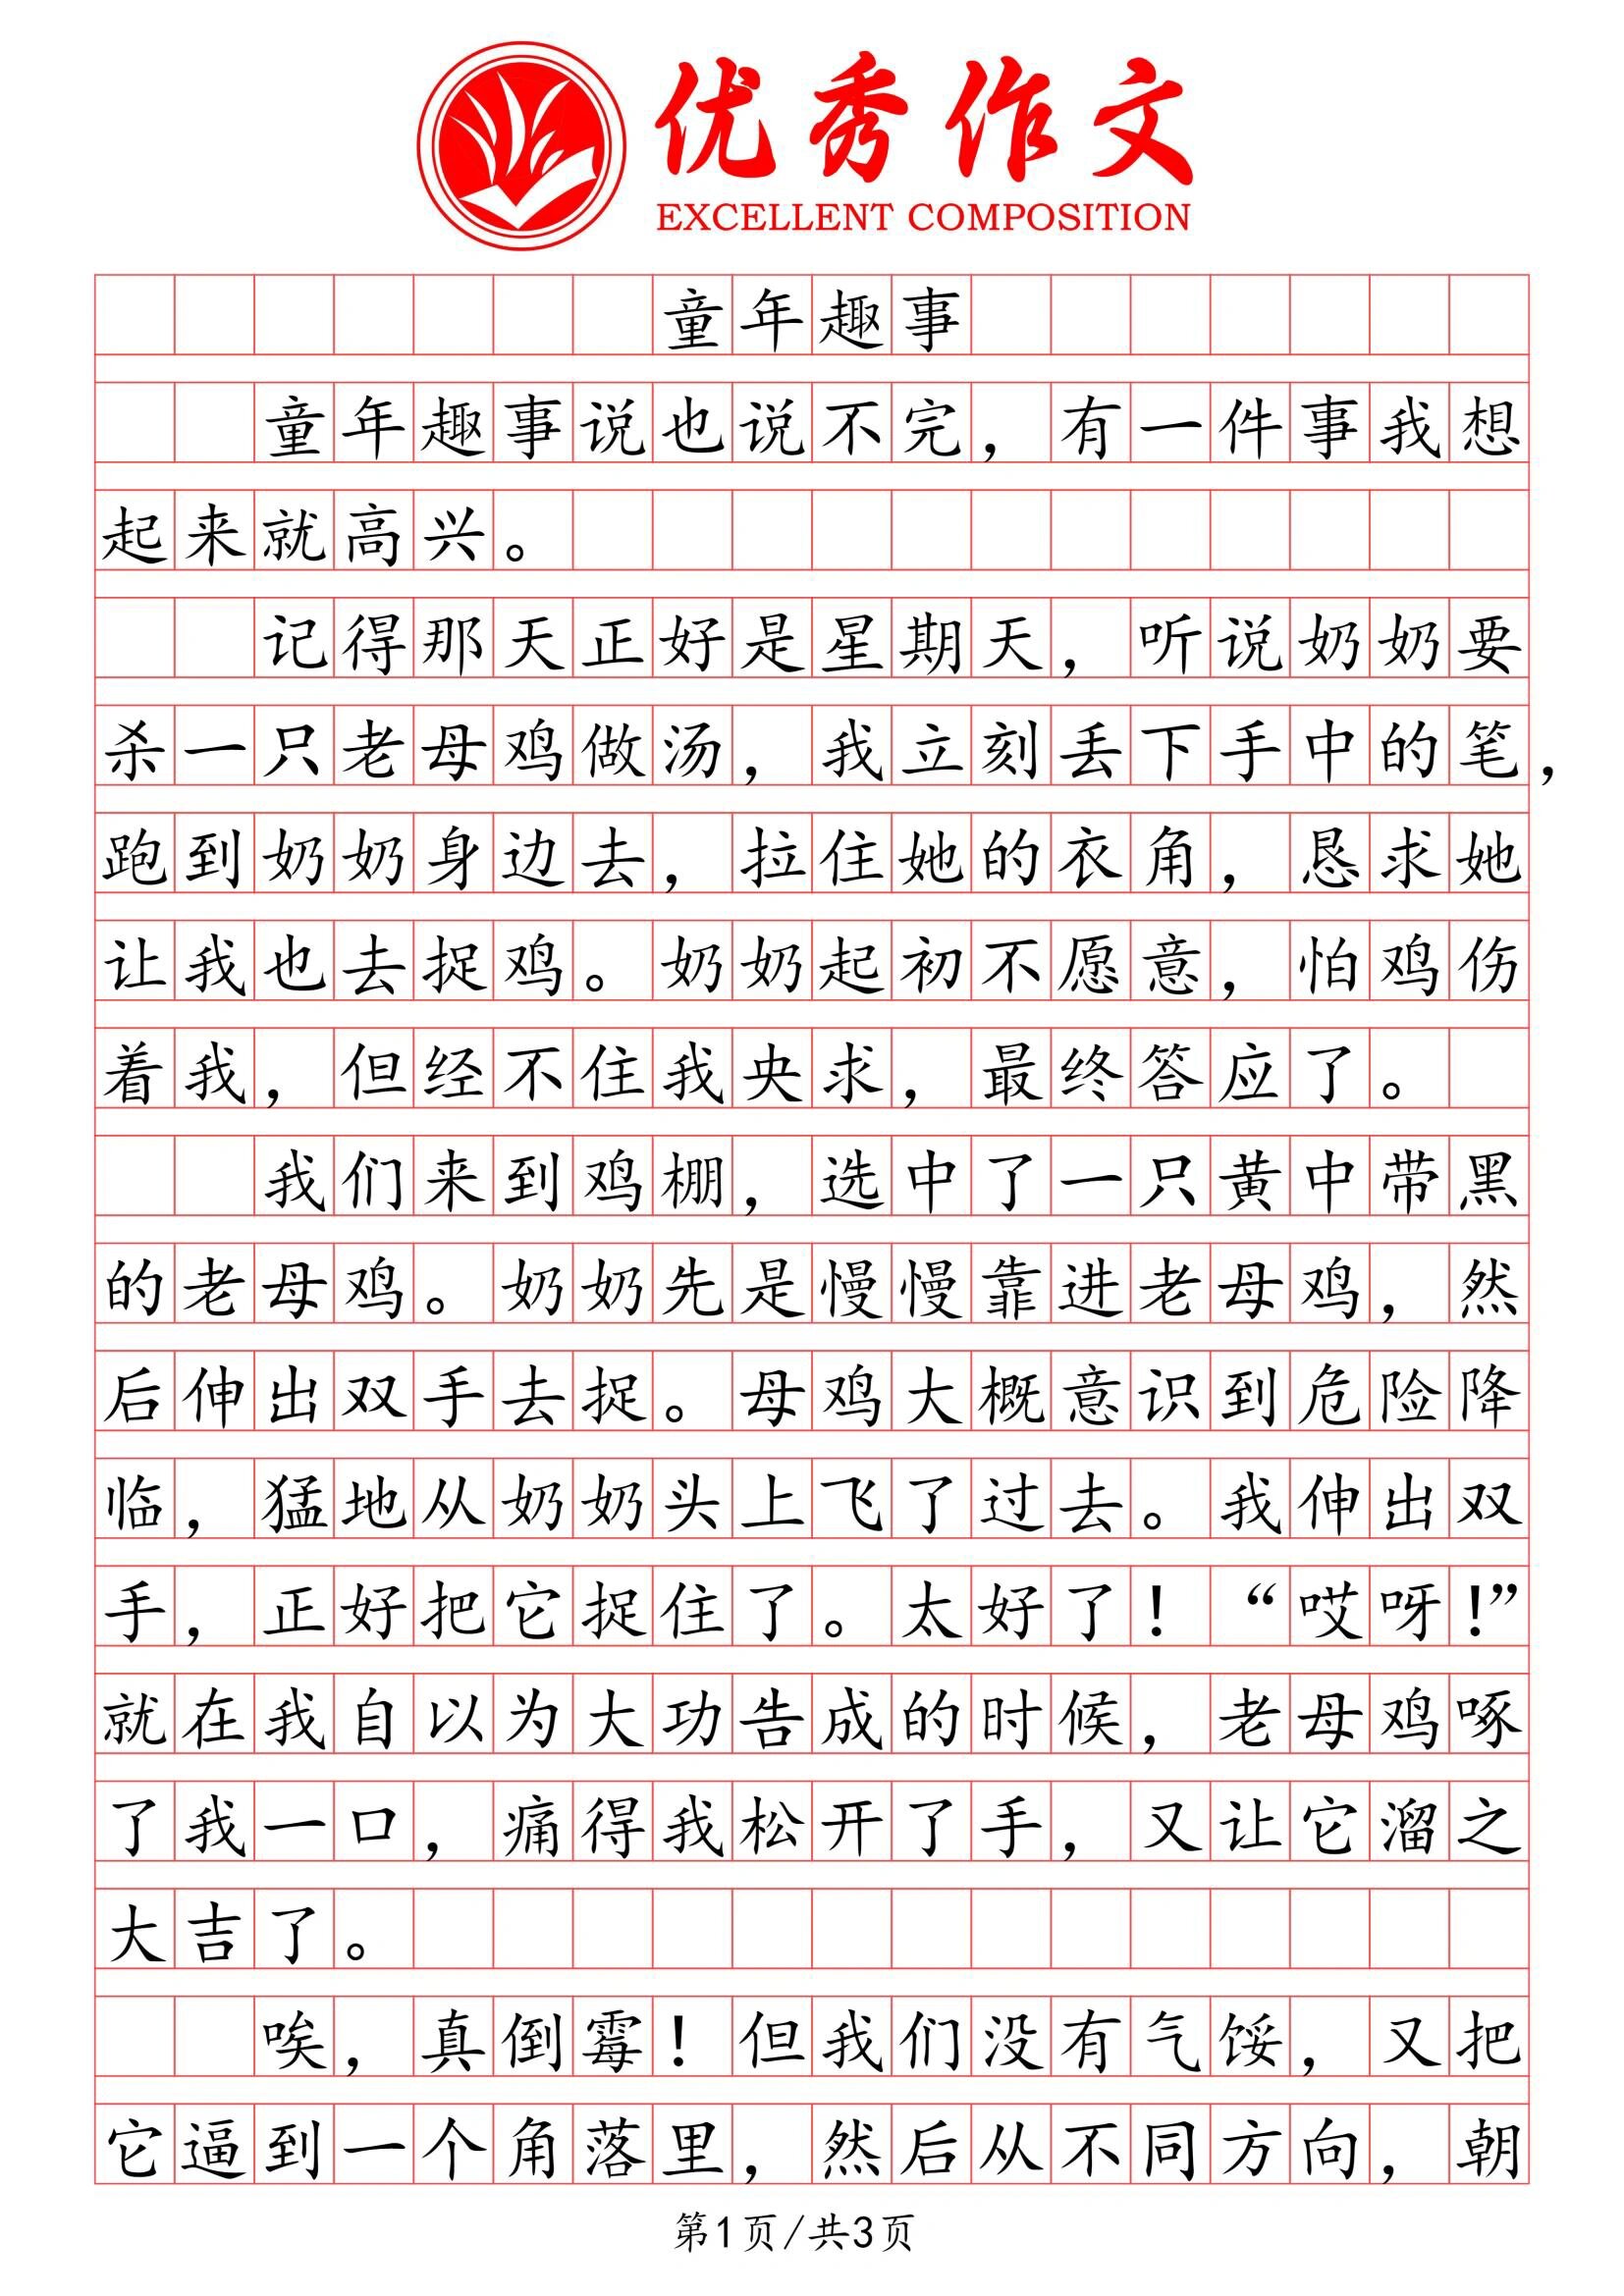 优秀作文
EXCELLENT COMPOSITION
童年趣事
童年趣事说也说不完，有一件事我想
起来就高兴。
记得那天正好是星期天，听说奶奶要
杀一只老母鸡做汤，我立刻丢下手中的笔，
跑到奶奶身边去，拉住她的衣角，恳求她
让我也去捉鸡。奶奶起初不愿意，怕鸡伤
着我，但经不住我央求，最终答应了。
我们来到鸡棚，选中了一只黄中带黑
的老母鸡。奶奶先是慢慢靠进老母鸡，然
后伸出双手去捉。母鸡大概意识到危险降
临，猛地从奶奶头上飞了过去。我伸出双
手，正好把它捉住了。太好了！“哎呀！”
就在我自以为大功告成的时候，老母鸡啄
了我一口，痛得我松开了手，又让它溜之
大吉了。
唉，真倒霉！但我们没有气馁，又把
它逼到一个角落里，然后从不同方向，朝
第1页/共3页